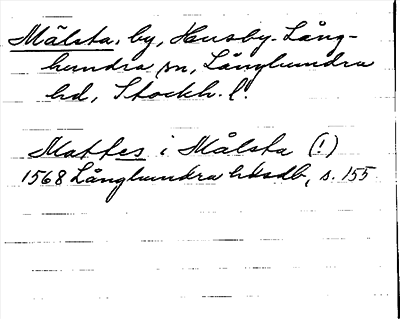 Målsta, by, Husby-Lång-
hundra sn, Långhundra
hd, Stockh. l.
Mattes i Målsta (!)
1568 Långhundra hdsdb, s. 155